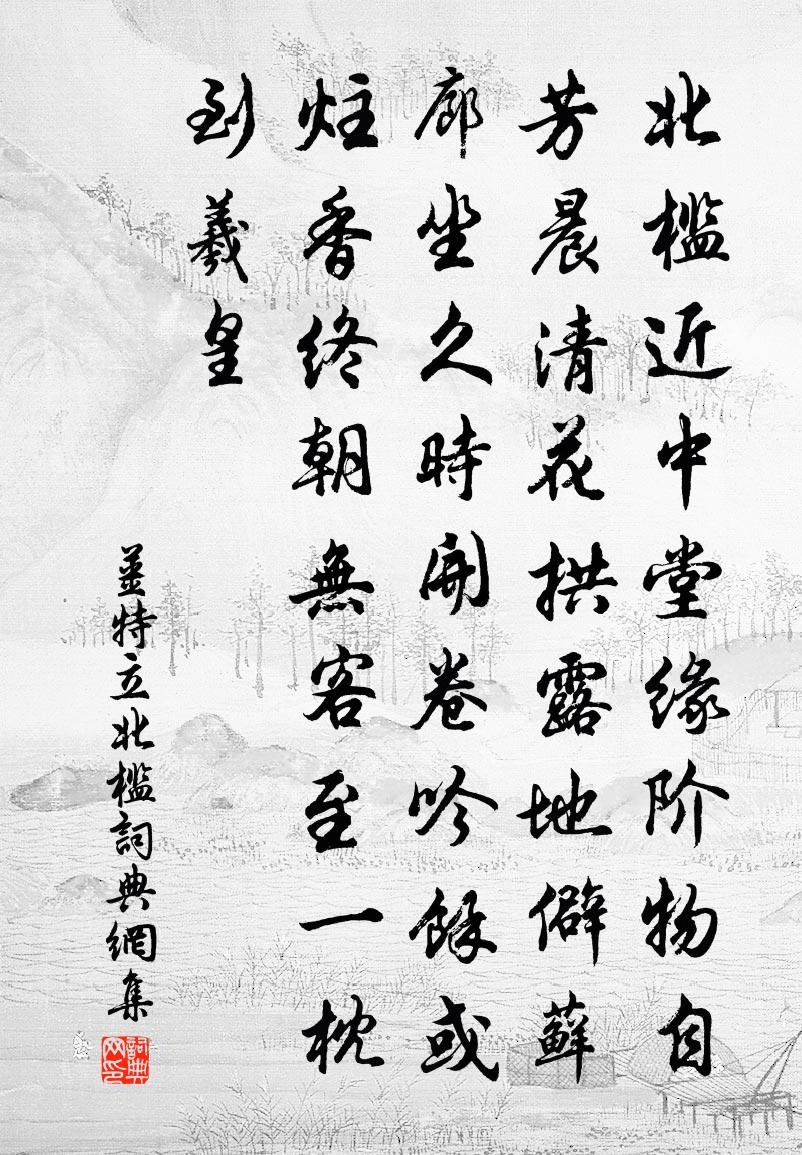 北檻近中堂緣阶物自
芳晨清花拱露地僻蘚
廊坐久時開卷吟餘或
炷香終朝無客至一枕
到羲皇
薑特立北檻詞典網集
詞典网印